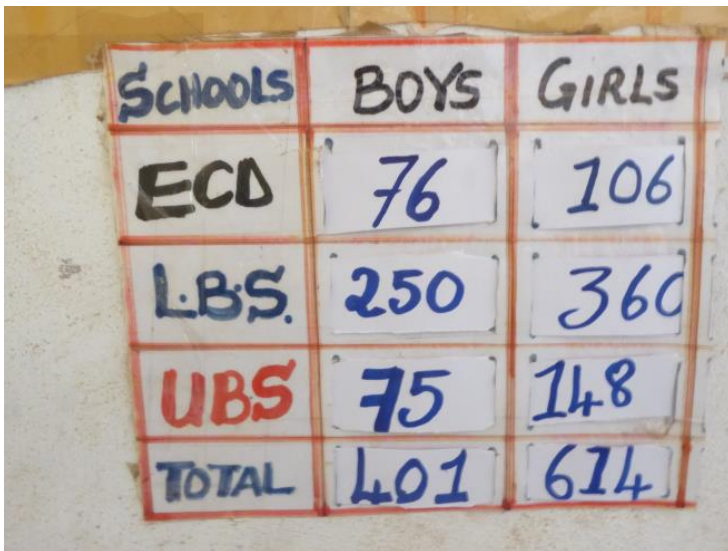 SCHOOLS BOYS GIRLS
ECD 76 106
L.B.S. 250 360
UBS 75 148
TOTAL 401 614